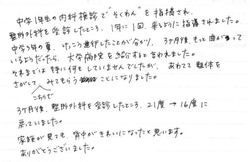 中学1年生の内科検診で"そくわん"を指摘され、
整形外科を受診したところ、1年に1回、来るように指摘されました。
中学3年の夏、けっこう進行したことが分かり、3ヶ月後、もっと曲がって
いるようだったら、大学病院を紹介すると言われました。
それまでは特に何もしていませんでしたが、あわてて整体を
さがして、みてもらうことになりました。
こちらで
3ヶ月後、整形外科を受診したところ、21度→16度に
戻っていました。
家族が見ても、背中がきれいになったと思います。
ありがとうございました。